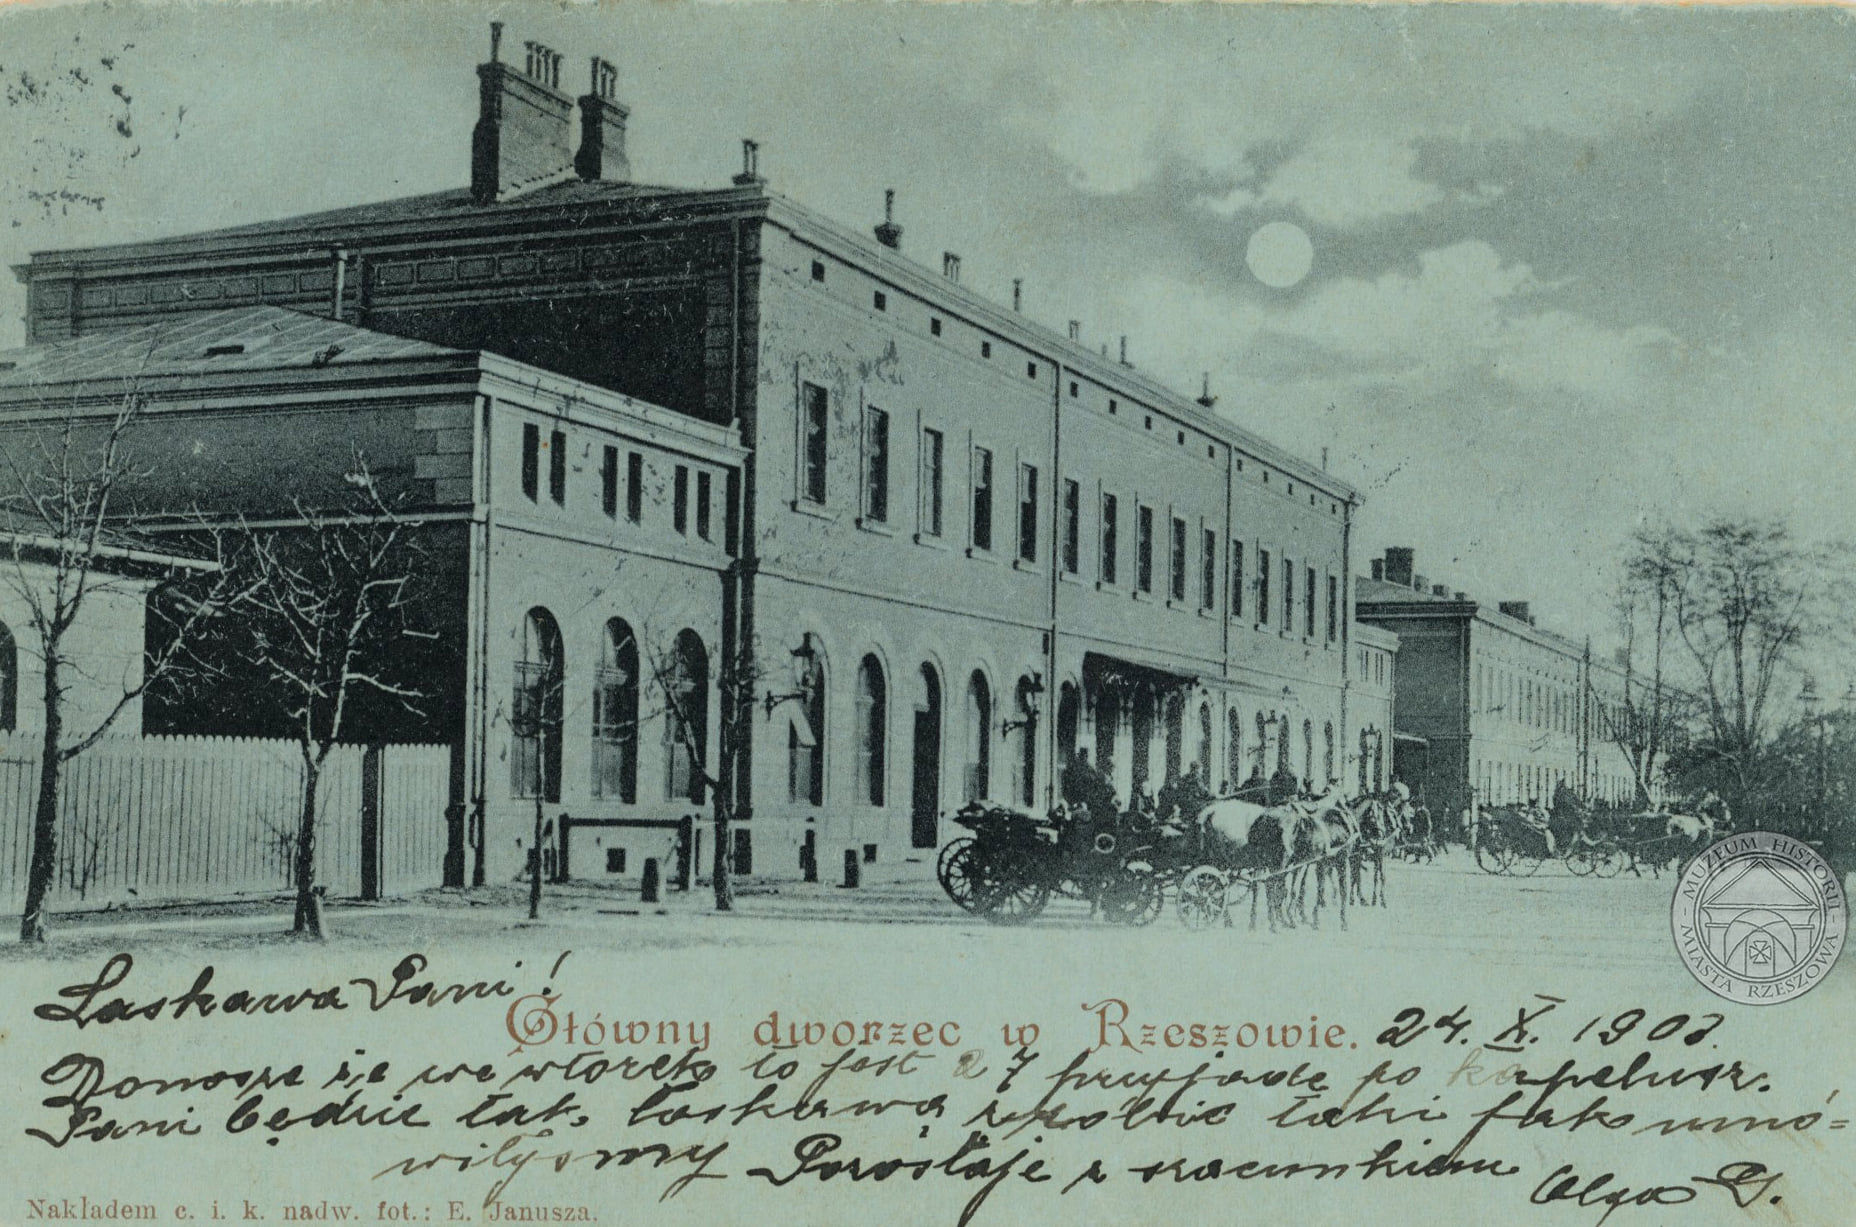 Łaskawa Pani!
Główny dworzec w Rzeszowie. 24. X. 1903.
Donoszę że we wtorek to jest 27 przyjadę po kapelusz.
Pani będzie tak łaskawą zrobić taki jak umó=
wiłyśmy Pozostaję z szacunkiem Olga G.
Nakładem c. i. k. nadw. fot.: E. Janusza.
MUZEUM HISTORII
MIASTA RZESZOWA